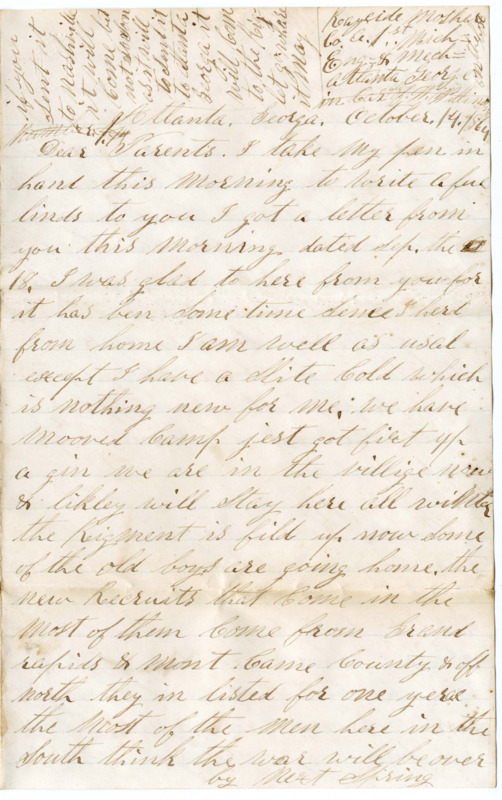 if you
sent it
to nashville
it will
come
not
as it will
to send it
to atlanta
Georga it
will come
to the
let
it may
Co a. 1st Mich
Eng & Mech
atlanta Georga
in Care
Atlanta, Georga. October, 14, 1864
Dear Parents. I take my pen in
hand this morning to write a fue
linds to you I got a letter from
you this morning dated sep. the
18. I was glad to here from you for
it has ben some time sence I herd
from home I am well as usal
except I have a slite Cold which
is nothing new for me; we have
mooved Camp jest got fixt up
a gin we are in the villige now
& likley will stay here all winter
the Regment is fild up now some
of the old boys are going home, the
new Recruits that Come in the
most of them Come from Grand
rapids & mont Came County, & off
north they in listed for one yere
the most of the men here in the
South think the war will be over
by next Spring